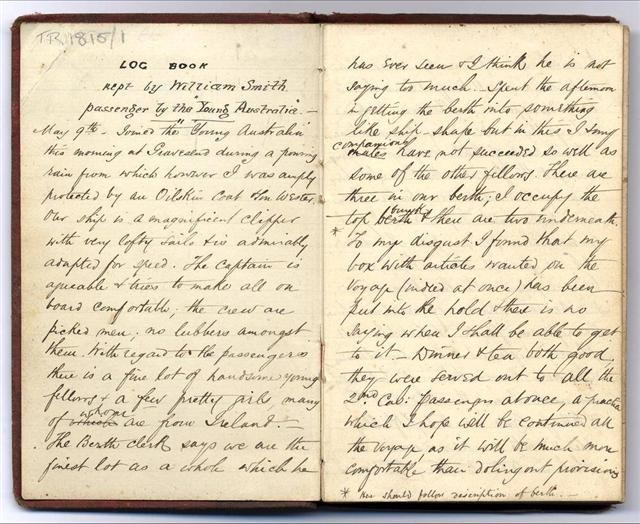 T.R. 1815/1
LOG BOOK
kept by William Smith
passenger by the "Young Australia". —
May 9th - Joined the "Young Australia"
this morning at Gravesend during a pouring
rain from which however I was amply
protected by an Oilskin Coat & Sou Wester.
Our ship is a magnificent clipper
with very lofty sails & is admirably
adapted for speed. The Captain is
agreeable & tries to make all on
board comfortable; the crew are
picked men; no lubbers amongst
them. With regard to the passengers
there is a fine lot of handsome young
fellows & a few pretty girls many
of whom are from Ireland. —
The Berth clerk says we are the
finest lot as a whole which he
has ever seen & I think he is not
saying too much. Spent the afternoon
in getting the berth into something
like ship-shape but in this I & my
companions
mates have not succeeded so well as
some of the other fellows. There are
three in our berth; I occupy the
top berth & there are two underneath.
* To my disgust I found that my
box with articles wanted on the
voyage (indeed at once) has been
put into the hold & there is no
saying when I shall be able to get
to it — Dinner & tea both good,
they were served out to all the
2nd Cab: Passengers at once, a practice
which I hope will be continued all
the voyage as it will be much more
comfortable than doling out provisions
* Here should follow description of berth. —